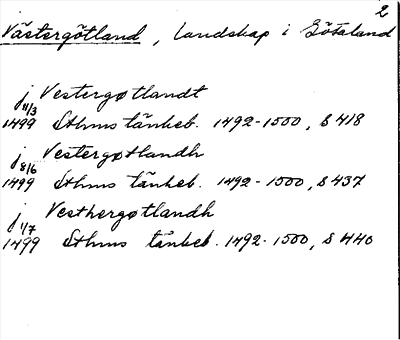 2
Västergötland, landskap i Götaland
j Vestergøtlandt
11/3
1499 Sthms tänkeb. 1492-1500, S 418
j Vestergøtlandh
8/6
1499 Sthms tänkeb. 1492-1500, S 437
j Vesthergøtlandh
1/7
1499 Sthms tänkeb. 1492-1500, S 440